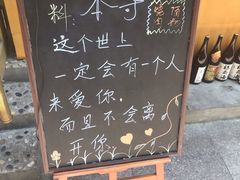 料: 本寺
这个世上
一定会有一个人
来爱你,
而且不会离
开你。